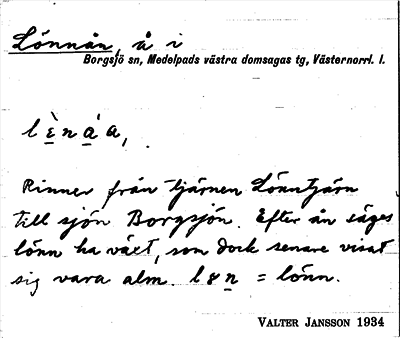 Lönnån, å i
Borgsjö sn, Medelpads västra domsagas tg, Västernorrl. l.
lὲnáa,
Rinner från tjärnen Lönntjärn
till sjön Borgsjön. Efter ån säges
lönn ha växt, som dock senare visat
sig vara alm. l8n = lönn.
VALTER JANSSON 1934